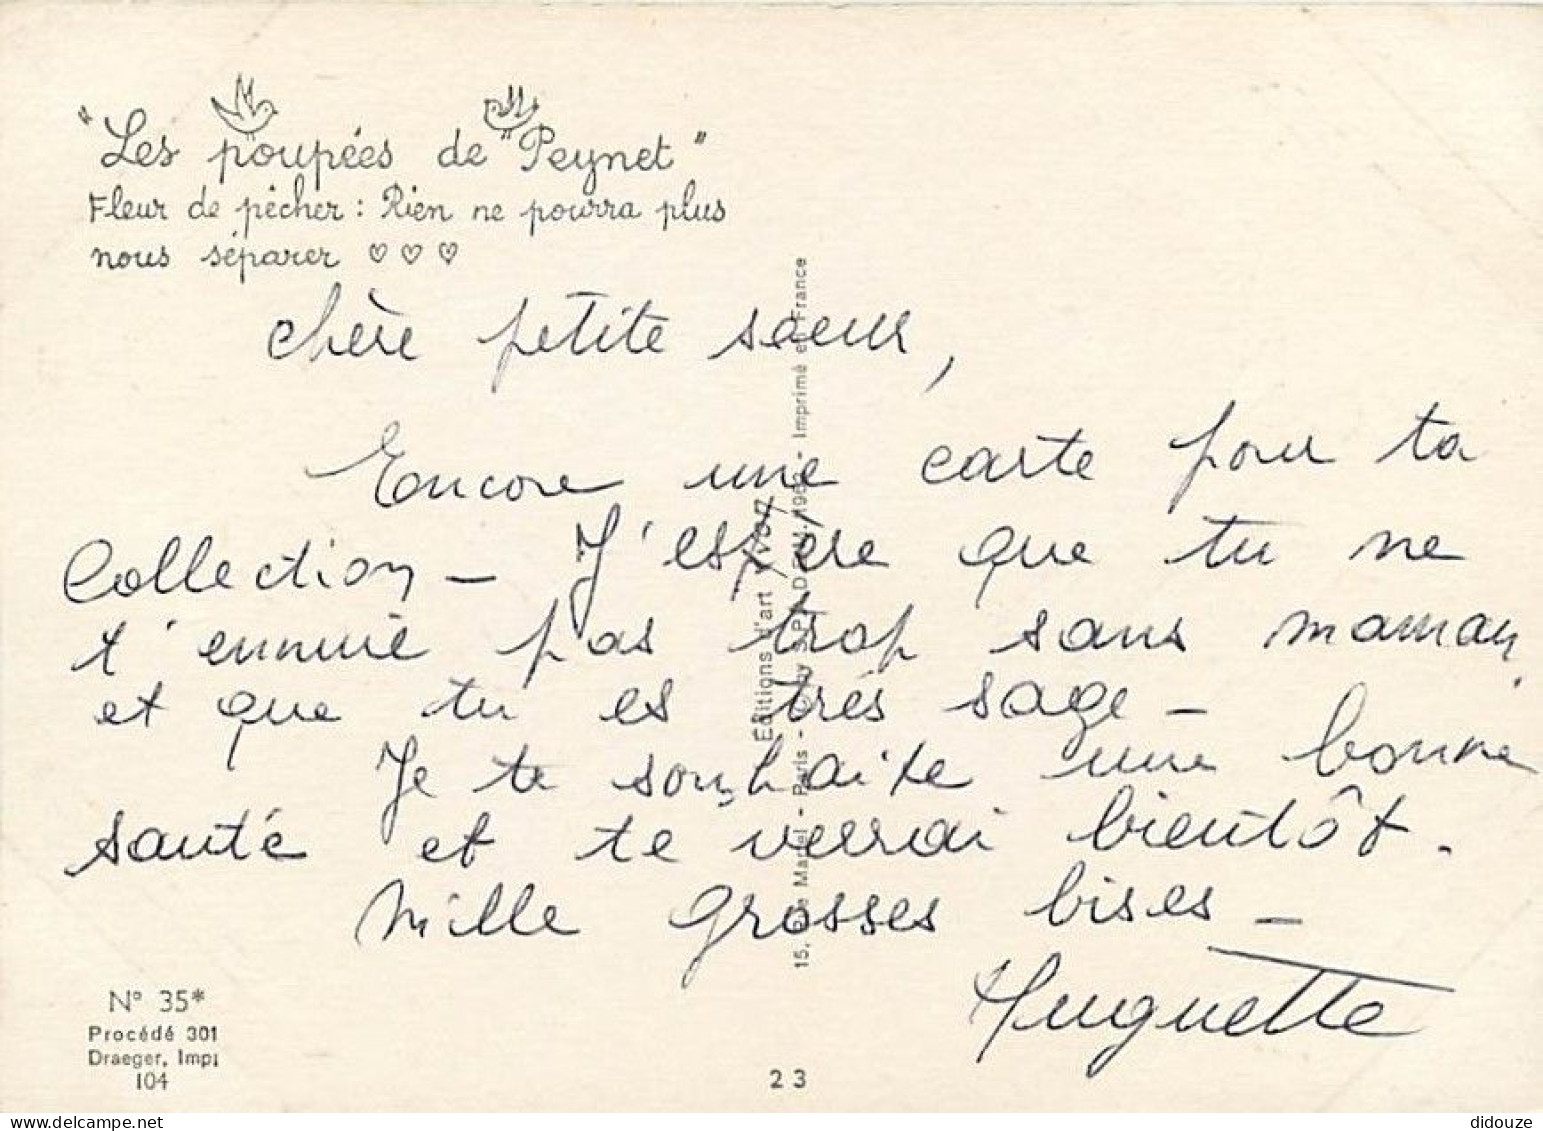 "Les poupées de "Peynet"
Fleur de pêcher : Rien ne pourra plus
nous séparer ♡ ♡ ♡
chère petite soeur,
Encore une carte pour ta
Collection - J'espère que tu ne
t'ennuie pas trop sans maman
et que tu es très sage -
Je te souhaite une bonne
santé et te verrai bientôt.
Mille grosses bises -
Huguette
Éditions d'art YVON
15, Rue Martel - Paris - - Imprimé en France
N° 35*
Procédé 301
Draeger, Imp.
104
23
delcampe.net
didouze